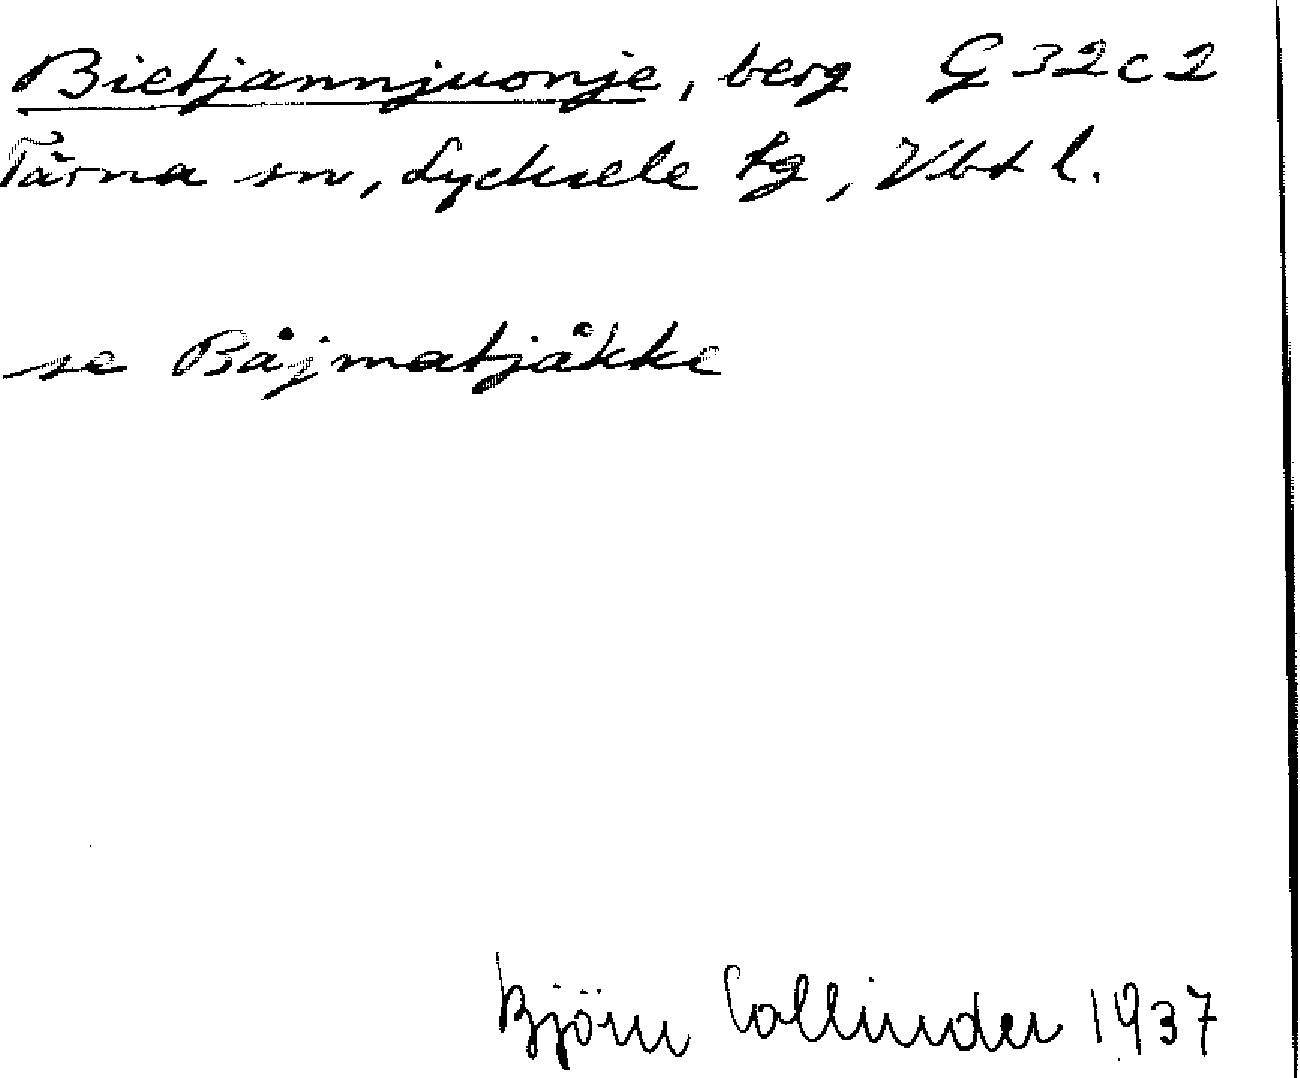 Bietjannjuonje, berg G 32 c 2
Tärna sn, Lycksele lg, Vbt l.
se Båjmatjåkke
Björn Collinder 1937